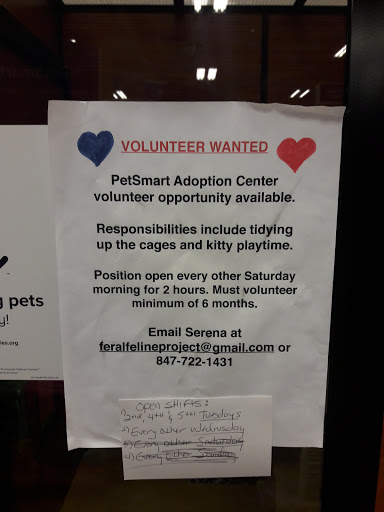 VOLUNTEER WANTED
PetSmart Adoption Center
volunteer opportunity available.
Responsibilities include tidying
up the cages and kitty playtime.
Position open every other Saturday
morning for 2 hours. Must volunteer
minimum of 6 months.
Email Serena at
feralfelineproject@gmail.com or
847-722-1431
g pets
y!
les.org
Open Shifts:
1) 2nd, 4th & 5th Tuesdays
2) Every other Wednesday
3) Every other Saturday
4) Every other Sunday